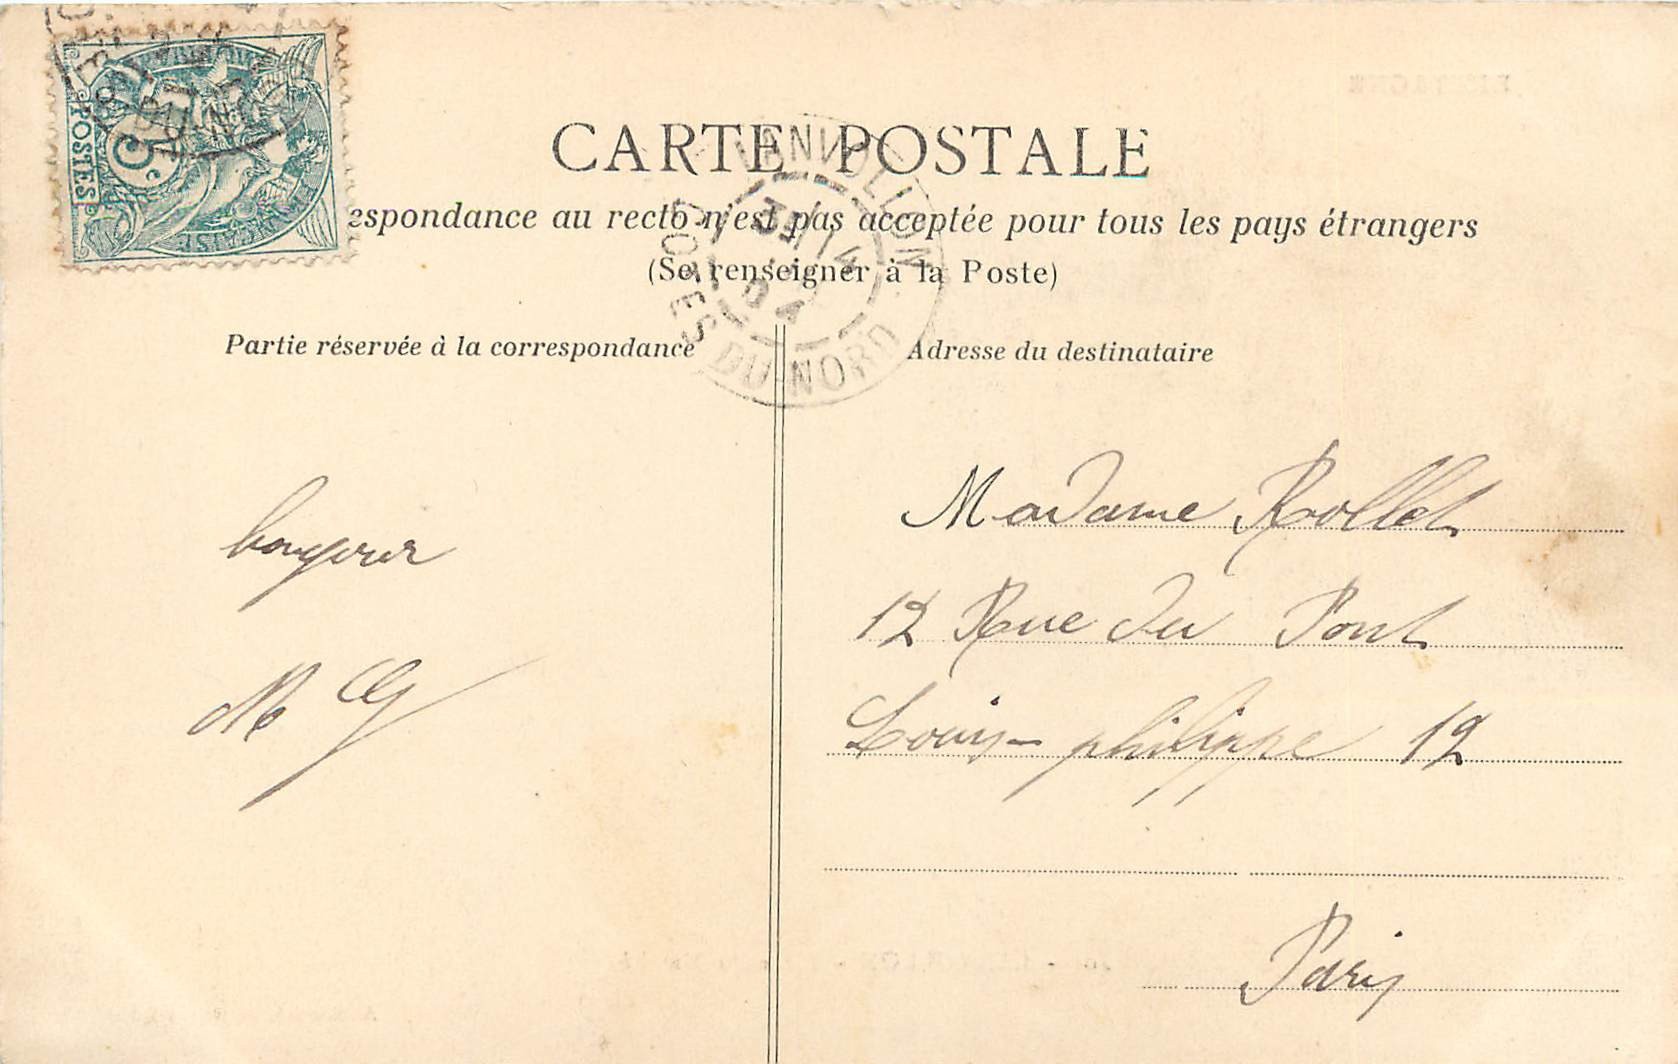 CARTE POSTALE
espondance au recto n'est pas acceptée pour tous les pays étrangers
(Se renseigner à la Poste)
POSTES
5c
LANVOLLON
14
04
COTES DU NORD
Partie réservée à la correspondance
Adresse du destinataire
bonjour
Madame Rollet
12 Rue du Pont
Louis-philippe 12
Paris